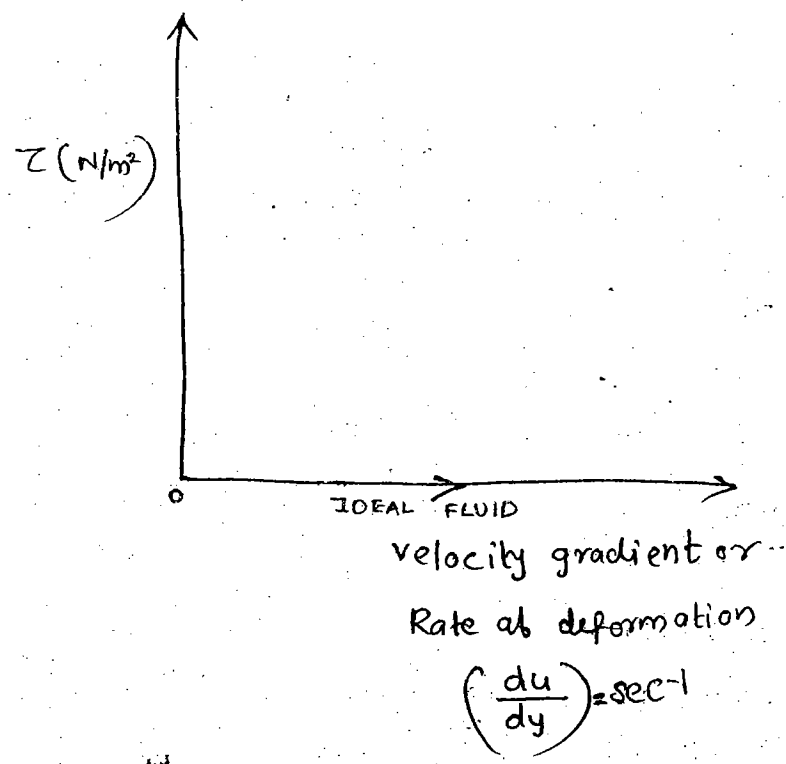 τ (N/m²)
0
IDEAL FLUID
velocity gradient or
Rate of deformation
(du/dy) = sec⁻¹